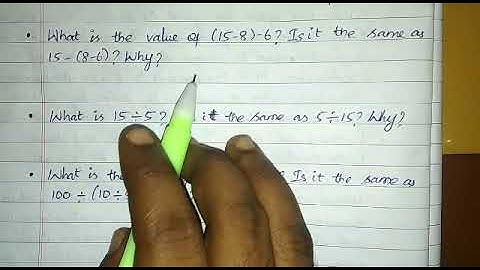 • What is the value of (15-8)-6? Is it the same as
15-(8-6)? Why?
• What is 15÷5? it the same as 5÷15? Why?
• What is the ? Is it the same as
100÷(10÷